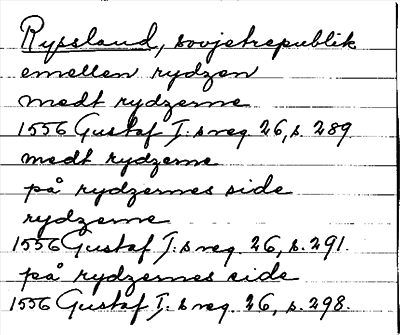 Ryssland, sovjetrepublik
emellen rydzen
medt rydzerne
1556 Gustaf I:s reg. 26, s. 289
medt rydzerne
på rydzernes side
rydzerne
1556 Gustaf I:s reg. 26, s. 291.
på rydzernes side
1556 Gustaf I:s reg. 26, s. 298.